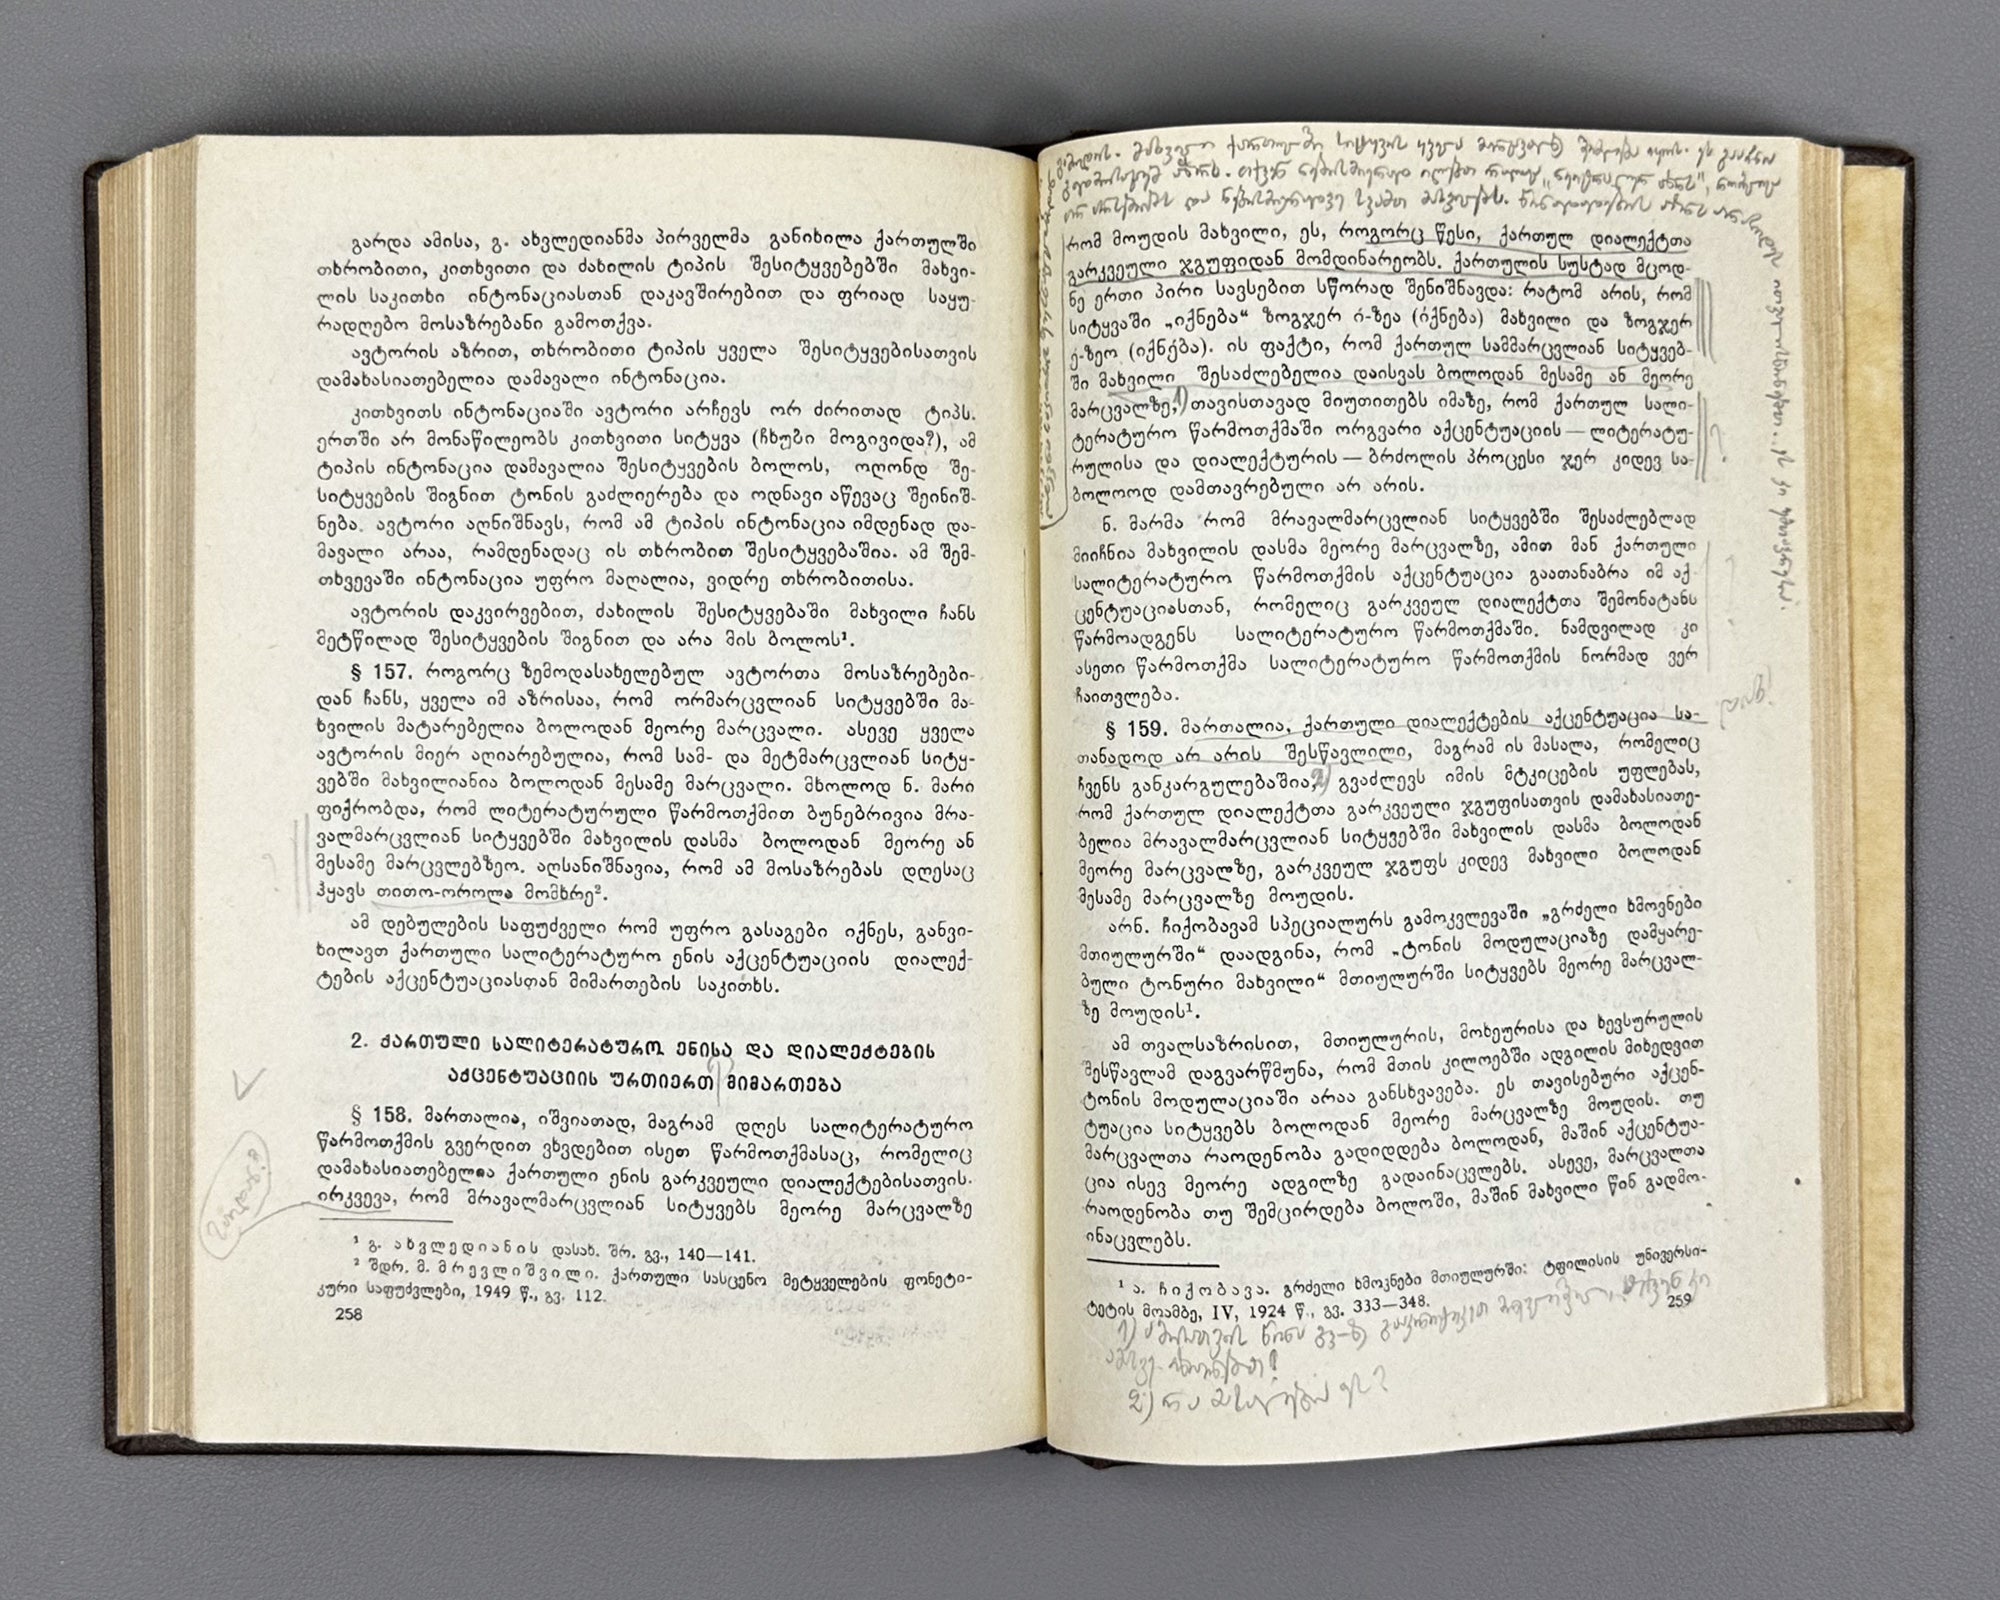 გარდა ამისა, გ. ახვლედიანმა პირველმა განიხილა ქართულში
თხრობითი, კითხვითი და ძახილის ტიპის შესიტყვებებში მახვი-
ლის საკითხი ინტონაციასთან დაკავშირებით და ფრიად საყუ-
რადღებო მოსაზრებანი გამოთქვა.
ავტორის აზრით, თხრობითი ტიპის ყველა შესიტყვებისათვის
დამახასიათებელია დამავალი ინტონაცია.
კითხვითს ინტონაციაში ავტორი არჩევს ორ ძირითად ტიპს.
ერთში არ მონაწილეობს კითხვითი სიტყვა (ჩხუბი მოგივიდა?), ამ
ტიპის ინტონაცია დამავალია შესიტყვების ბოლოს, ოღონდ შე-
სიტყვების შიგნით ტონის გაძლიერება და ოდნავი აწევაც შეინიშ-
ნება. ავტორი აღნიშნავს, რომ ამ ტიპის ინტონაცია იმდენად და-
მავალი არაა, რამდენადაც ის თხრობით შესიტყვებაშია. ამ შემ-
თხვევაში ინტონაცია უფრო მაღალია, ვიდრე თხრობითისა.
ავტორის დაკვირვებით, ძახილის შესიტყვებაში მახვილი ჩანს
მეტწილად შესიტყვების შიგნით და არა მის ბოლოს¹.
§ 157. როგორც ზემოდასახელებულ ავტორთა მოსაზრებები-
დან ჩანს, ყველა იმ აზრისაა, რომ ორმარცვლიან სიტყვებში მა-
ხვილის მატარებელია ბოლოდან მეორე მარცვალი. ასევე ყველა
ავტორის მიერ აღიარებულია, რომ სამ- და მეტმარცვლიან სიტყ-
ვებში მახვილიანია ბოლოდან მესამე მარცვალი. მხოლოდ ნ. მარი
ფიქრობდა, რომ ლიტერატურული წარმოთქმით ბუნებრივია მრა-
ვალმარცვლიან სიტყვებში მახვილის დასმა ბოლოდან მეორე ან
მესამე მარცვლებზეო. აღსანიშნავია, რომ ამ მოსაზრებას დღესაც
ჰყავს თითო-ოროლა მომხრე².
ამ დებულების საფუძველი რომ უფრო გასაგები იქნეს, განვი-
ხილავთ ქართული სალიტერატურო ენის აქცენტუაციის დიალექ-
ტების აქცენტუაციასთან მიმართების საკითხს.
2. ქართული სალიტერატურო ენისა და დიალექტების
აქცენტუაციის ურთიერთ მიმართება
§ 158. მართალია, იშვიათად, მაგრამ დღეს სალიტერატურო
წარმოთქმის გვერდით ვხვდებით ისეთ წარმოთქმასაც, რომელიც
დამახასიათებელია ქართული ენის გარკვეული დიალექტებისათვის.
ირკვევა, რომ მრავალმარცვლიან სიტყვებს მეორე მარცვალზე
¹ გ. ახვლედიანის დასახ. შრ. გვ., 140—141.
² შდრ. მ. მრევლიშვილი. ქართული სასცენო მეტყველების ფონეტი-
კური საფუძვლები, 1949 წ., გვ. 112.
258
რომ მოუდის მახვილი, ეს, როგორც წესი, ქართულ დიალექტთა
გარკვეული ჯგუფიდან მომდინარეობს. ქართულის სუსტად მცოდ-
ნე ერთი პირი სავსებით სწორად შენიშნავდა: რატომ არის, რომ
სიტყვაში „იქნება“ ზოგჯერ ი́-ზეა (ი́ქნება) მახვილი და ზოგჯერ
ე́-ზეო (იქნე́ბა). ის ფაქტი, რომ ქართულ სამმარცვლიან სიტყვებ-
ში მახვილი შესაძლებელია დაისვას ბოლოდან მესამე ან მეორე
მარცვალზე, 1) თავისთავად მიუთითებს იმაზე, რომ ქართულ სალი-
ტერატურო წარმოთქმაში ორგვარი აქცენტუაციის — ლიტერატუ-
რულისა და დიალექტურის — ბრძოლის პროცესი ჯერ კიდევ სა-
ბოლოოდ დამთავრებული არ არის.
ნ. მარმა რომ მრავალმარცვლიან სიტყვებში შესაძლებლად
მიიჩნია მახვილის დასმა მეორე მარცვალზე, ამით მან ქართული
სალიტერატურო წარმოთქმის აქცენტუაცია გაათანაბრა იმ აქ-
ცენტუაციასთან, რომელიც გარკვეულ დიალექტთა შემონატანს
წარმოადგენს სალიტერატურო წარმოთქმაში. ნამდვილად კი
ასეთი წარმოთქმა სალიტერატურო წარმოთქმის ნორმად ვერ
ჩაითვლება.
§ 159. მართალია, ქართული დიალექტების აქცენტუაცია სა-
თანადოდ არ არის შესწავლილი, მაგრამ ის მასალა, რომელიც
ჩვენს განკარგულებაშია, 2) გვაძლევს იმის მტკიცების უფლებას,
რომ ქართულ დიალექტთა გარკვეული ჯგუფისათვის დამახასიათე-
ბელია მრავალმარცვლიან სიტყვებში მახვილის დასმა ბოლოდან
მეორე მარცვალზე, გარკვეულ ჯგუფს კიდევ მახვილი ბოლოდან
მესამე მარცვალზე მოუდის.
არნ. ჩიქობავამ სპეციალურს გამოკვლევაში „გრძელი ხმოვნები
მთიულურში“ დაადგინა, რომ „ტონის მოდულაციაზე დამყარე-
ბული ტონური მახვილი“ მთიულურში სიტყვებს მეორე მარცვალ-
ზე მოუდის¹.
ამ თვალსაზრისით, მთიულურის, მოხეურისა და ხევსურულის
შესწავლამ დაგვარწმუნა, რომ მთის კილოებში ადგილის მიხედვით
ტონის მოდულაციაში არაა განსხვავება. ეს თავისებური აქცენ-
ტუაცია სიტყვებს ბოლოდან მეორე მარცვალზე მოუდის. თუ
მარცვალთა რაოდენობა გადიდდება ბოლოდან, მაშინ აქცენტუა-
ცია ისევ მეორე ადგილზე გადაინაცვლებს. ასევე, მარცვალთა
რაოდენობა თუ შემცირდება ბოლოში, მაშინ მახვილი წინ გადმო-
ინაცვლებს.
¹ ა. ჩიქობავა. გრძელი ხმოვნები მთიულურში: ტფილისის უნივერსი-
ტეტის მოამბე, IV, 1924 წ., გვ. 333—348.
259
2) რა მასალებია ეს?